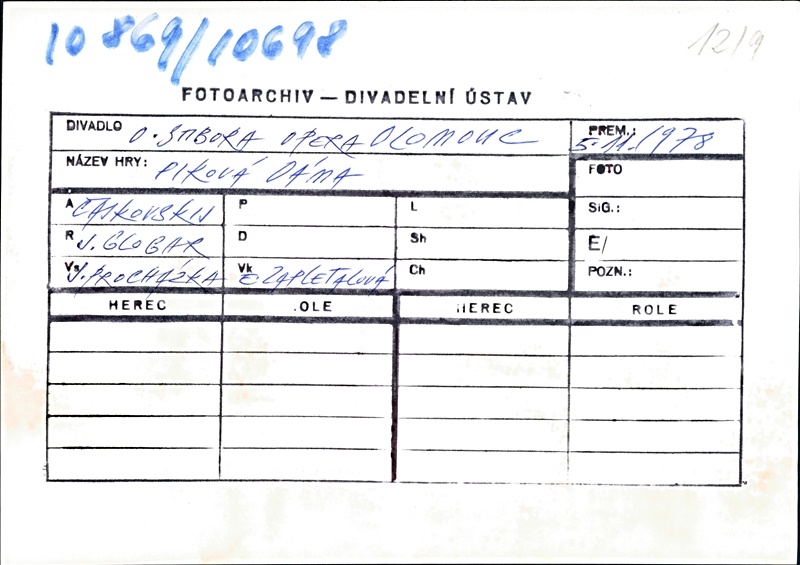 10869/10698
1219
FOTOARCHIV — DIVADELNÍ ÚSTAV
DIVADLO O. STIBORA OPERA OLOMOUC
PREM.: 5.11.1978
NÁZEV HRY: PIKOVÁ DÁMA
FOTO
A ČAJKOVSKIJ P L
SIG.:
R J. GLOGAR D Sh
E/
Vs J. PROCHÁZKA Vk E. ZAPLETALOVÁ Ch
POZN.:
HEREC .OLE HEREC ROLE